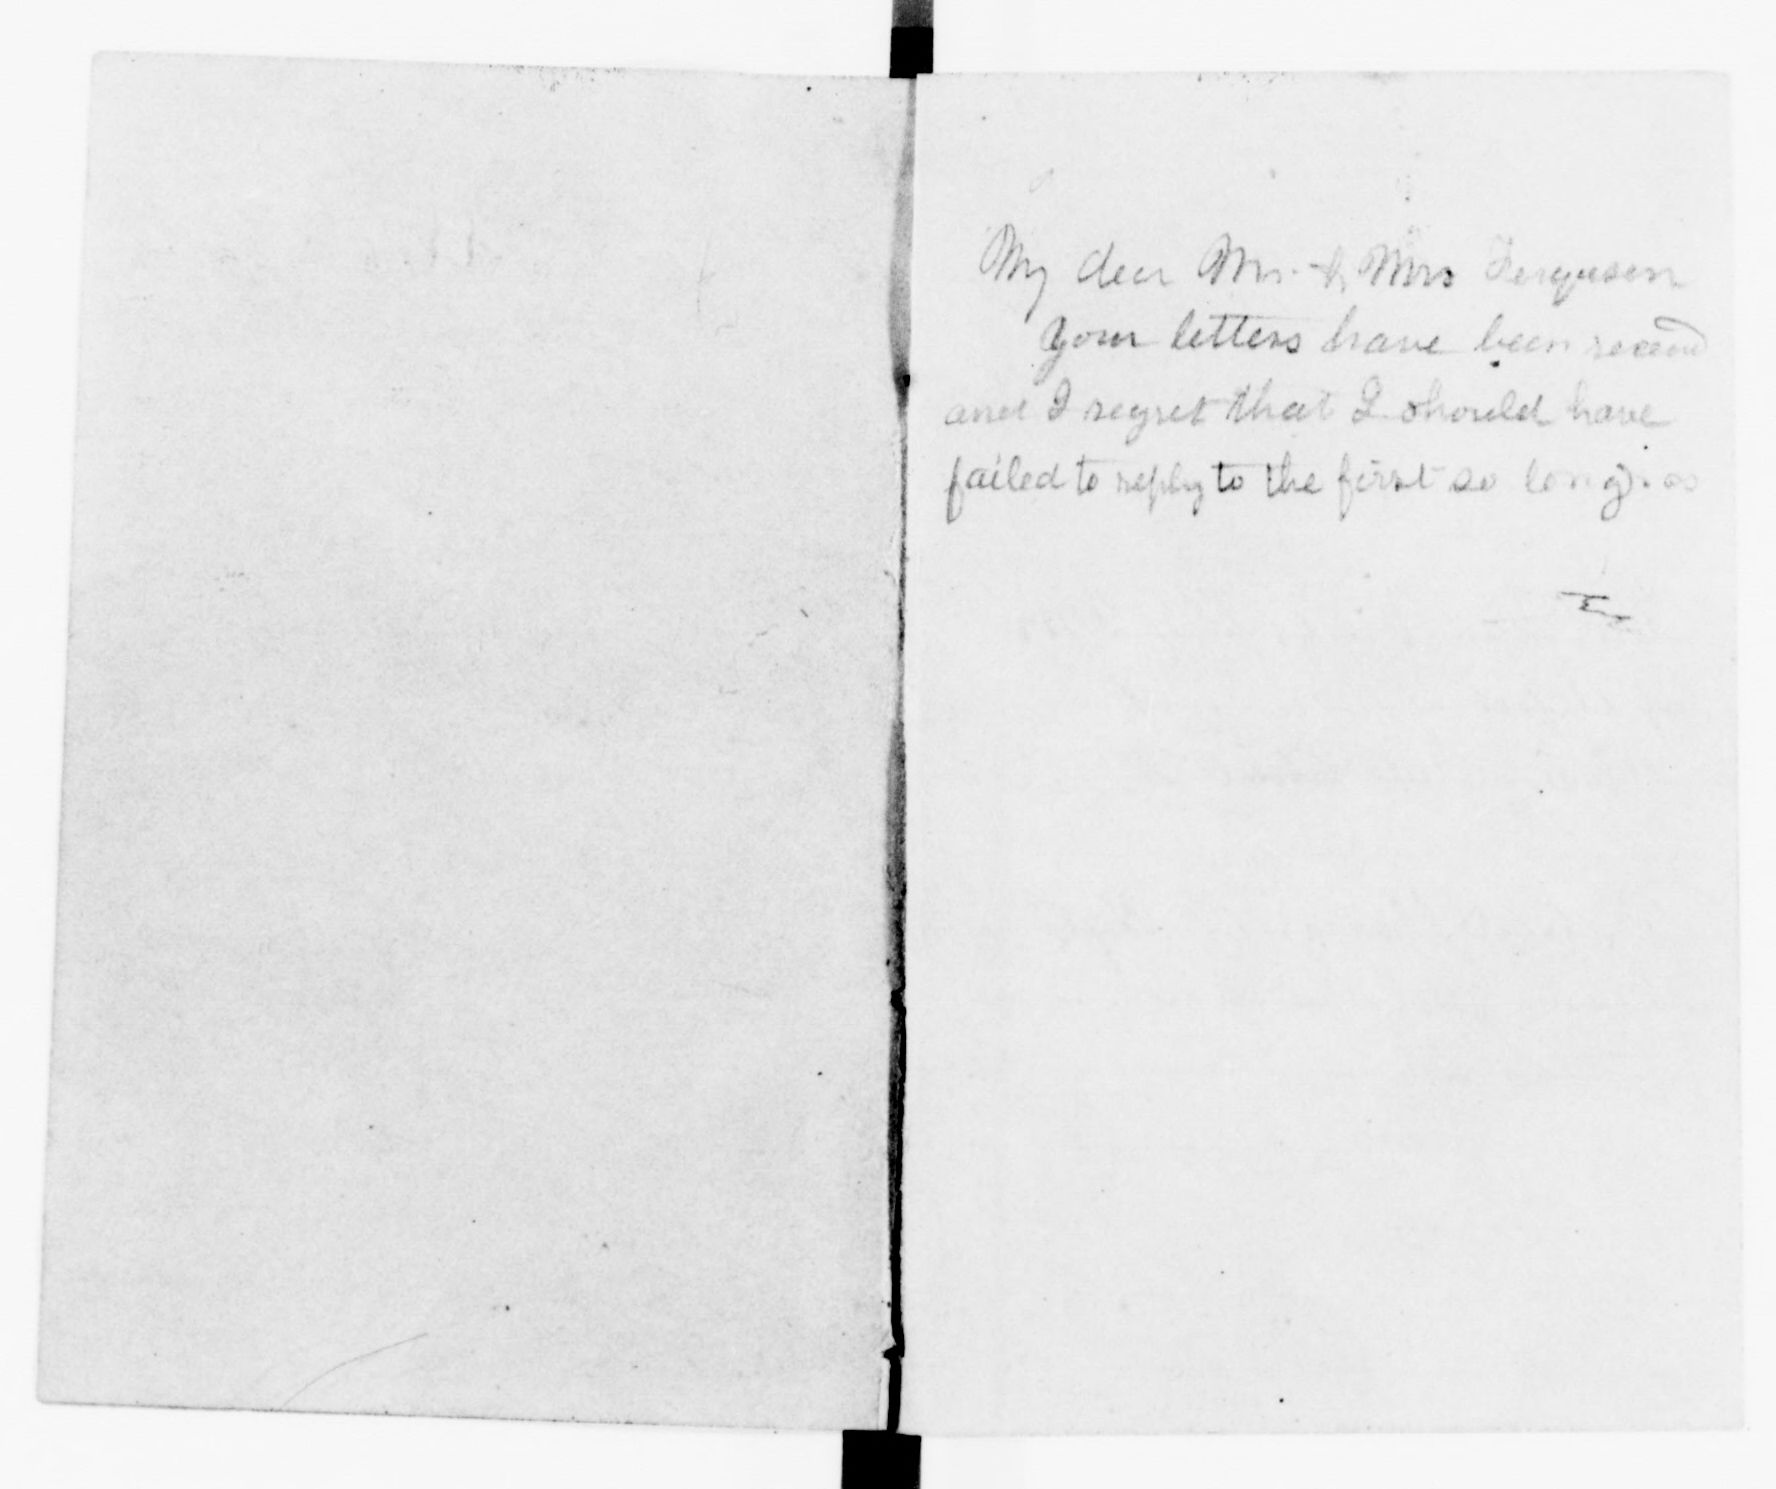 My dear Mr. & Mrs Ferguson
Your letters have been recevd
and I regret that I should have
failed to reply to the first so long. as